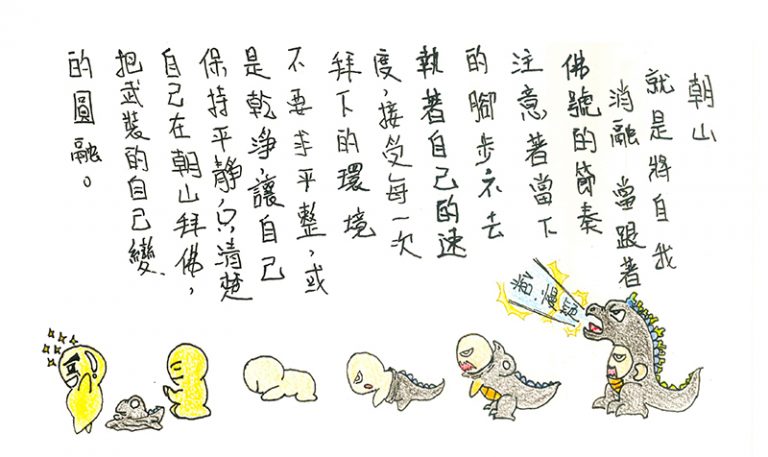 朝山
就是將自我
消融 當跟著
佛號的節奏
注意著當下
的腳步不去
執著自己的速
度,接受每一次
拜下的環境
不要求平整,或
是乾淨,讓自己
保持平靜,只清楚
自己在朝山拜佛,
把武裝的自己變
的圓融。
慢.疑